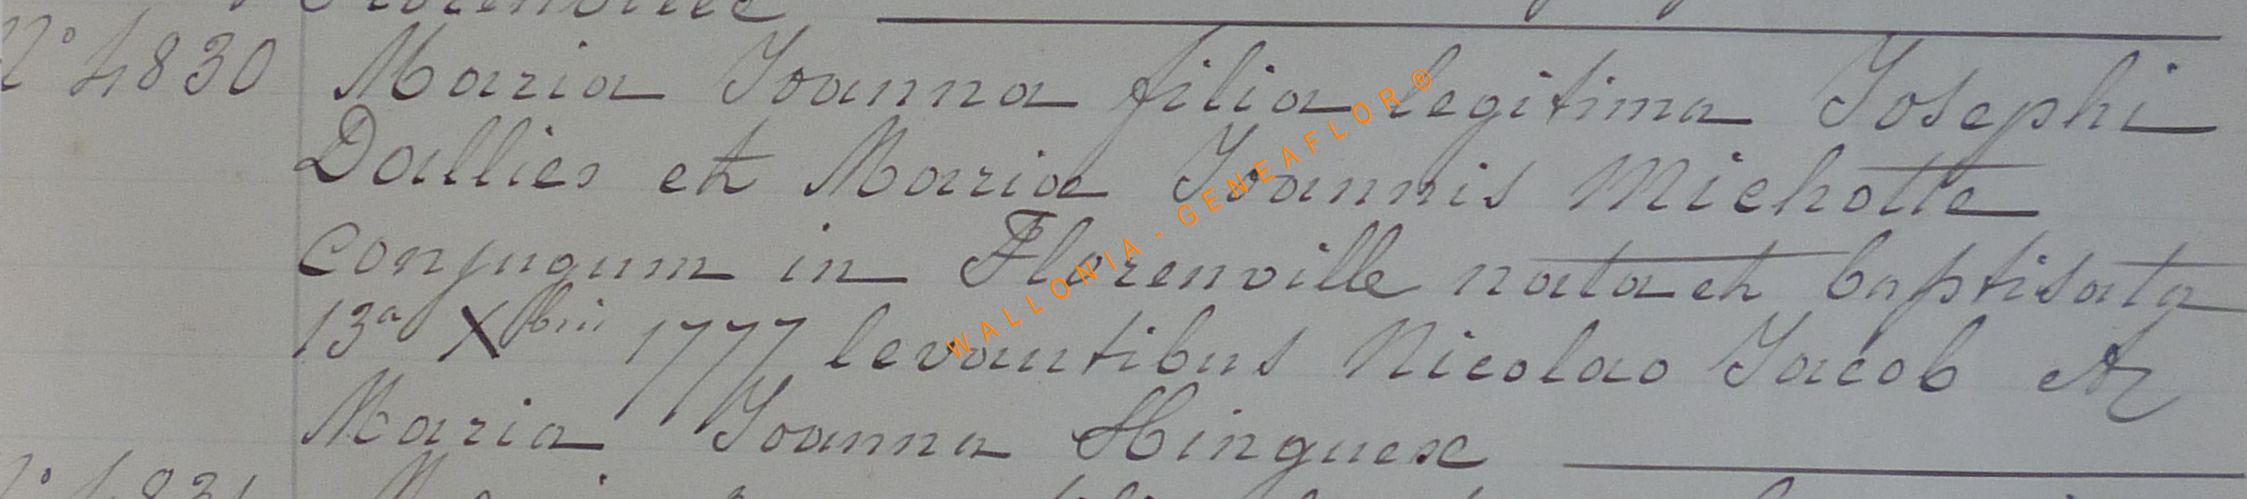 N° 4830 Maria Joanna filia legitima Josephi
Dallies et Mariae Joannis Michotte
conjugum in Florenville nata et baptisata
13a Xbris 1777 levantibus Nicolao Jacob et
Maria Joanna Hinguese
N° 4831
WALLONIA - GENEAFLOR®